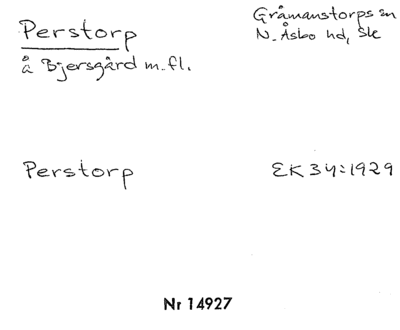 Perstorp
Gråmanstorps sn
N. Åsbo hd, Sk
å Bjersgård m.fl.
Perstorp
EK 34:1929
Nr 14927